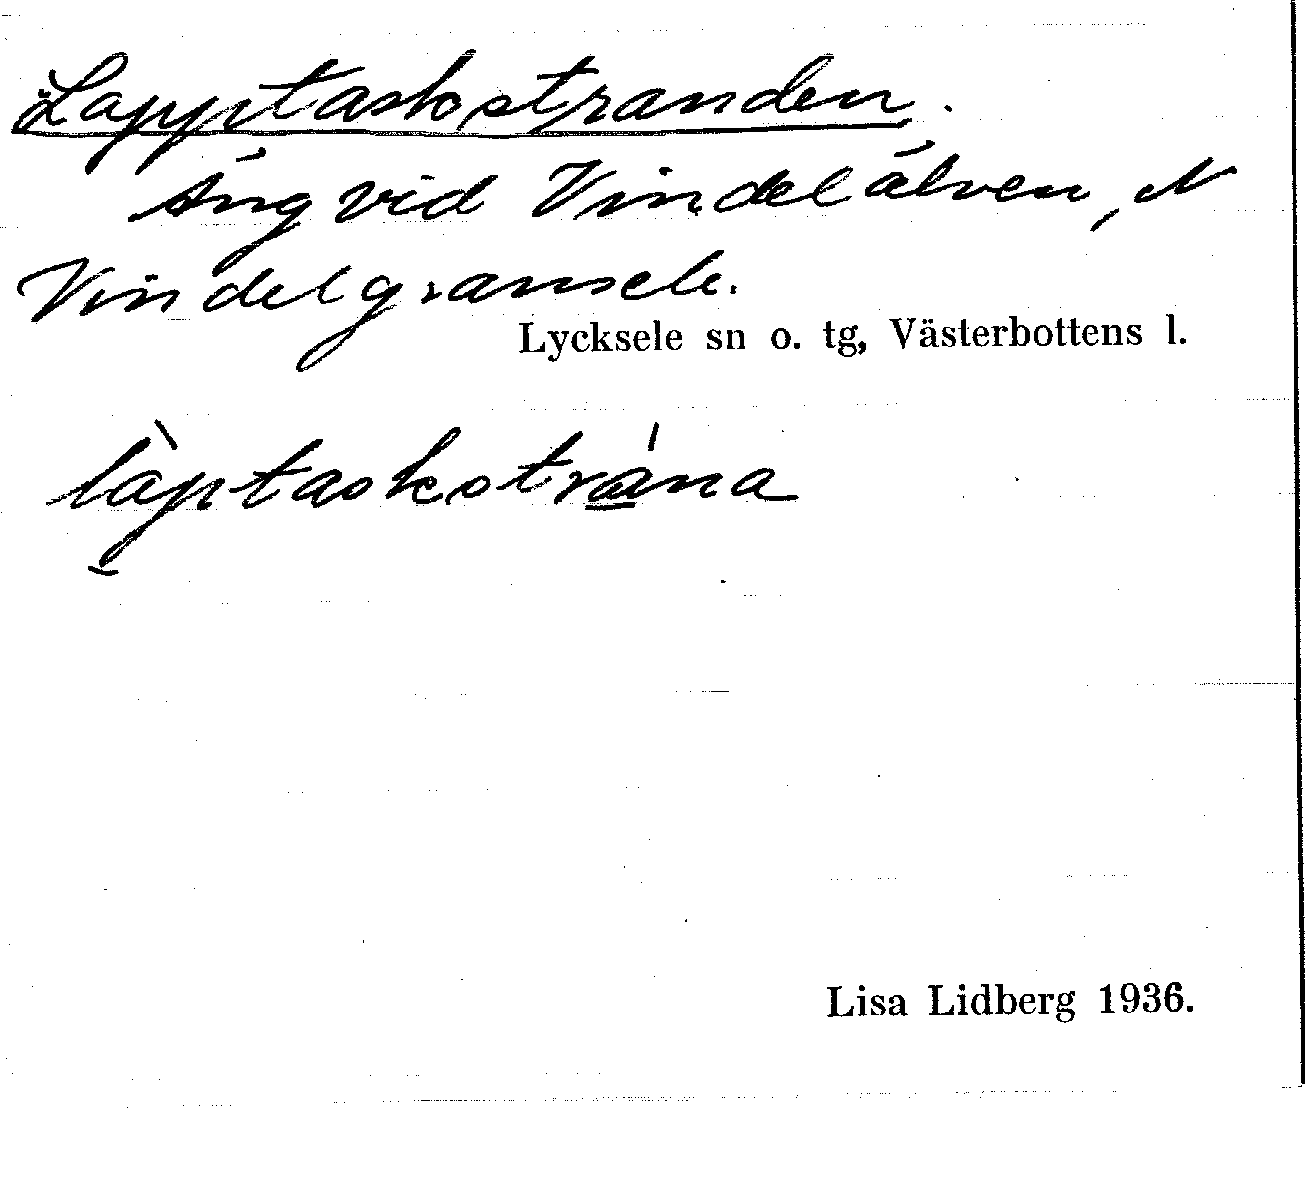 Lapptaskstranden.
Äng vid Vindelälven, N
Vindelgransele.
Lycksele sn o. tg, Västerbottens l.
làptaskstrána
Lisa Lidberg 1936.